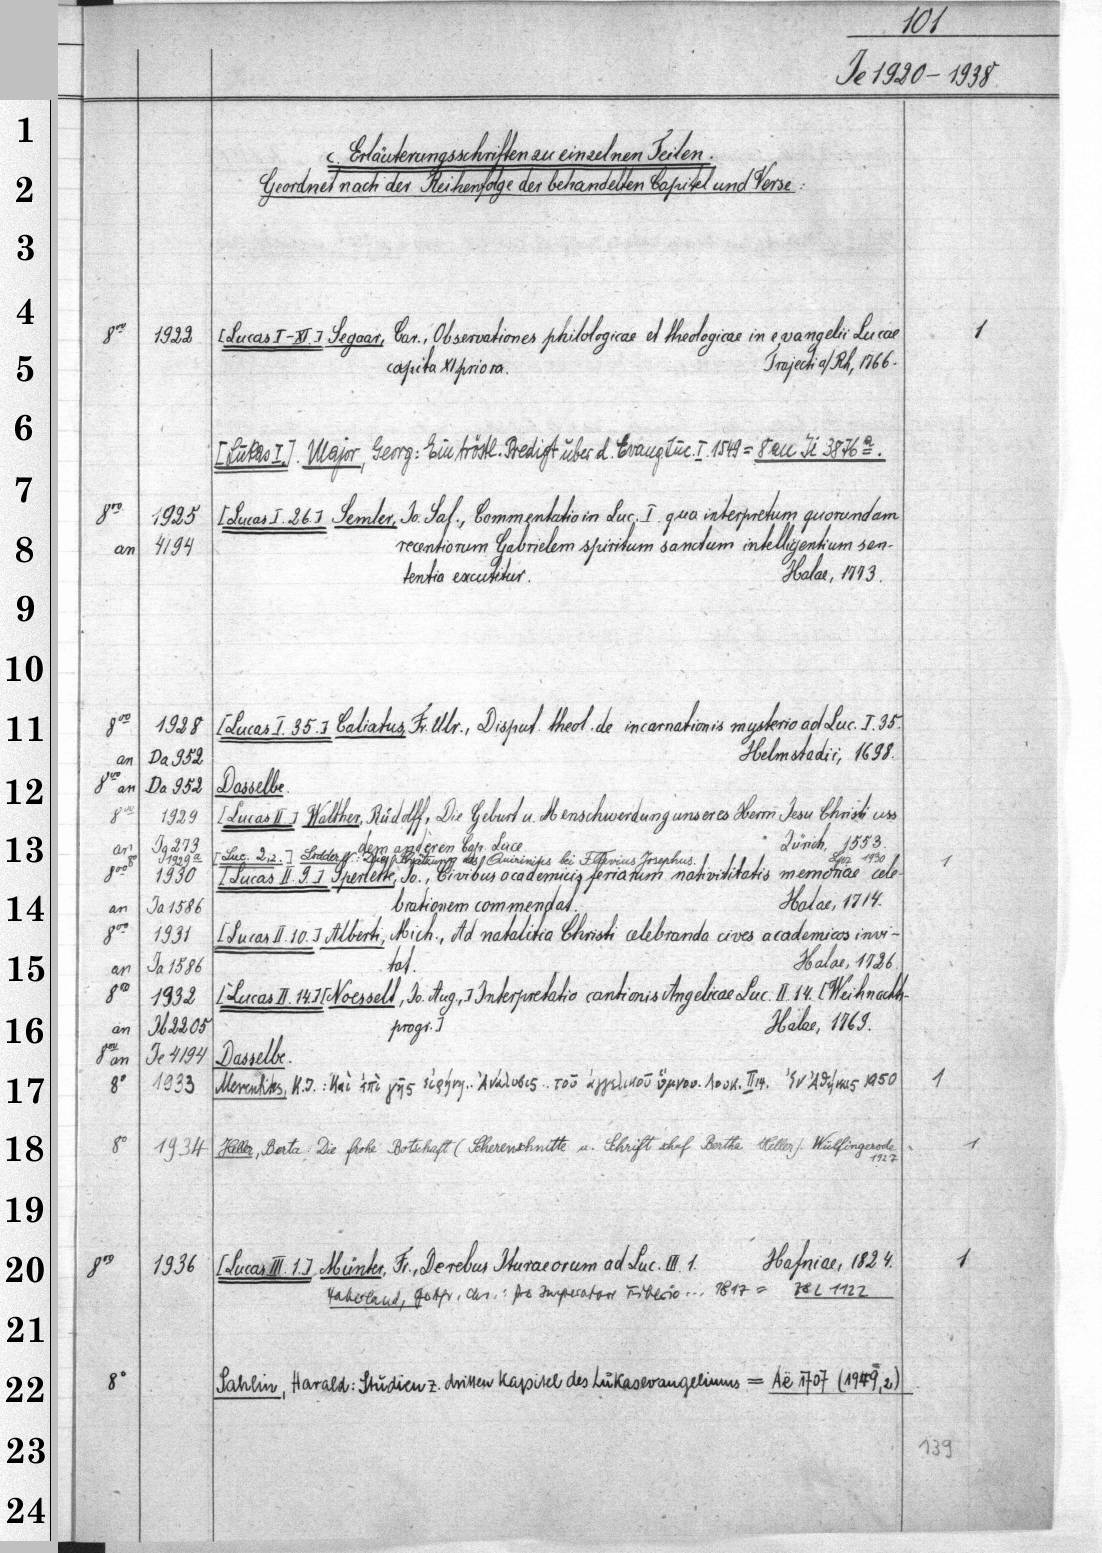 101
Je 1920 - 1938
c. Erläuterungsschriften zu einzelnen Teilen.
Geordnet nach der Reihenfolge der behandelten Capitel und Verse:
1
2
3
4
8vo 1922 [Lucas I-XI.] Segaar, Car., Observationes philologicae et theologicae in evangelii Lucae 1
5
capita XI priora. Trajecti a/Rh, 1766.
6
[Lukas I.]. Major, Georg: Ein tröstl. Predigt über d. Evang Luc. I. 1549 = 8 an Ji 3876 a.
7
8vo 1925 [Lucas I. 26.] Semler, Jo. Sal., Commentatio in Luc. I. qua interpretum quorundam
8
an 4194 recentiorum Gabrielem spiritum sanctum intelligentium sen-
tentia excutitur. Halae, 1773.
9
10
11
8vo 1928 [Lucas I. 35.] Calixtus, Fr. Ulr., Disput. theol. de incarnationis mysterio ad Luc. I. 35.
an Da 952 Helmstadii, 1698.
12
8vo an Da 952 Dasselbe.
8vo 1929 [Lucas II.] Walther, Rudolff, Die Geburt u. Menschwerdung unseres Herrn Jesu Christi uss
13
an Jg 273 dem anderen Cap. Luce Zürich, 1553.
8° 1929a [Luc. 2,2.] Die Schätzung des Quirinius bei Flavius Josephus. Lpz 1930 1
8vo 1930 [Lucas II. 9.] Sperlette, Jo., Civibus academicis feriarum nativititatis memoriae cele-
14
an Ja 1586 brationem commendat. Halae, 1714.
8vo 1931 [Lucas II. 10.] Alberti, Mich., Ad natalitia Christi celebranda cives academicos invi-
15
an Ja 1586 tat. Halae, 1726.
8vo 1932 [Lucas II. 14.] [Noesselt, Jo. Aug.,] Interpretatio cantionis Angelicae Luc. II. 14. [Weihnachts-
16
an Jb 2205 progr.] Halae, 1769.
8vo an Je 4194 Dasselbe.
17
8° 1933 Merentitis, K.J.: Καὶ ἐπὶ γῆς εἰρήνη.. Ἀνάλυσις.. τοῦ ἀγγελικοῦ ὕμνου. Λουκ. II 14. Ἐν Ἀθήναις 1950 1
18
8° 1934 Heller, Berta: Die frohe Botschaft (Scherenschnitte u. Schrift schuf Bertha Heller). Wülfingerode 1
1927
19
20
8vo 1936 [Lucas III. 1.] Münter, Fr., De rebus Ituraeorum ad Luc. III. 1. Hafniae, 1824. 1
Haberland, Gotfr. Chr.: pro Imperatore Tiberio... 1817 = 1122
21
22
8° Sahlin, Harald: Studien z. dritten Kapitel des Lukasevangeliums = Aë 1707 (1949,2)
23
139
24